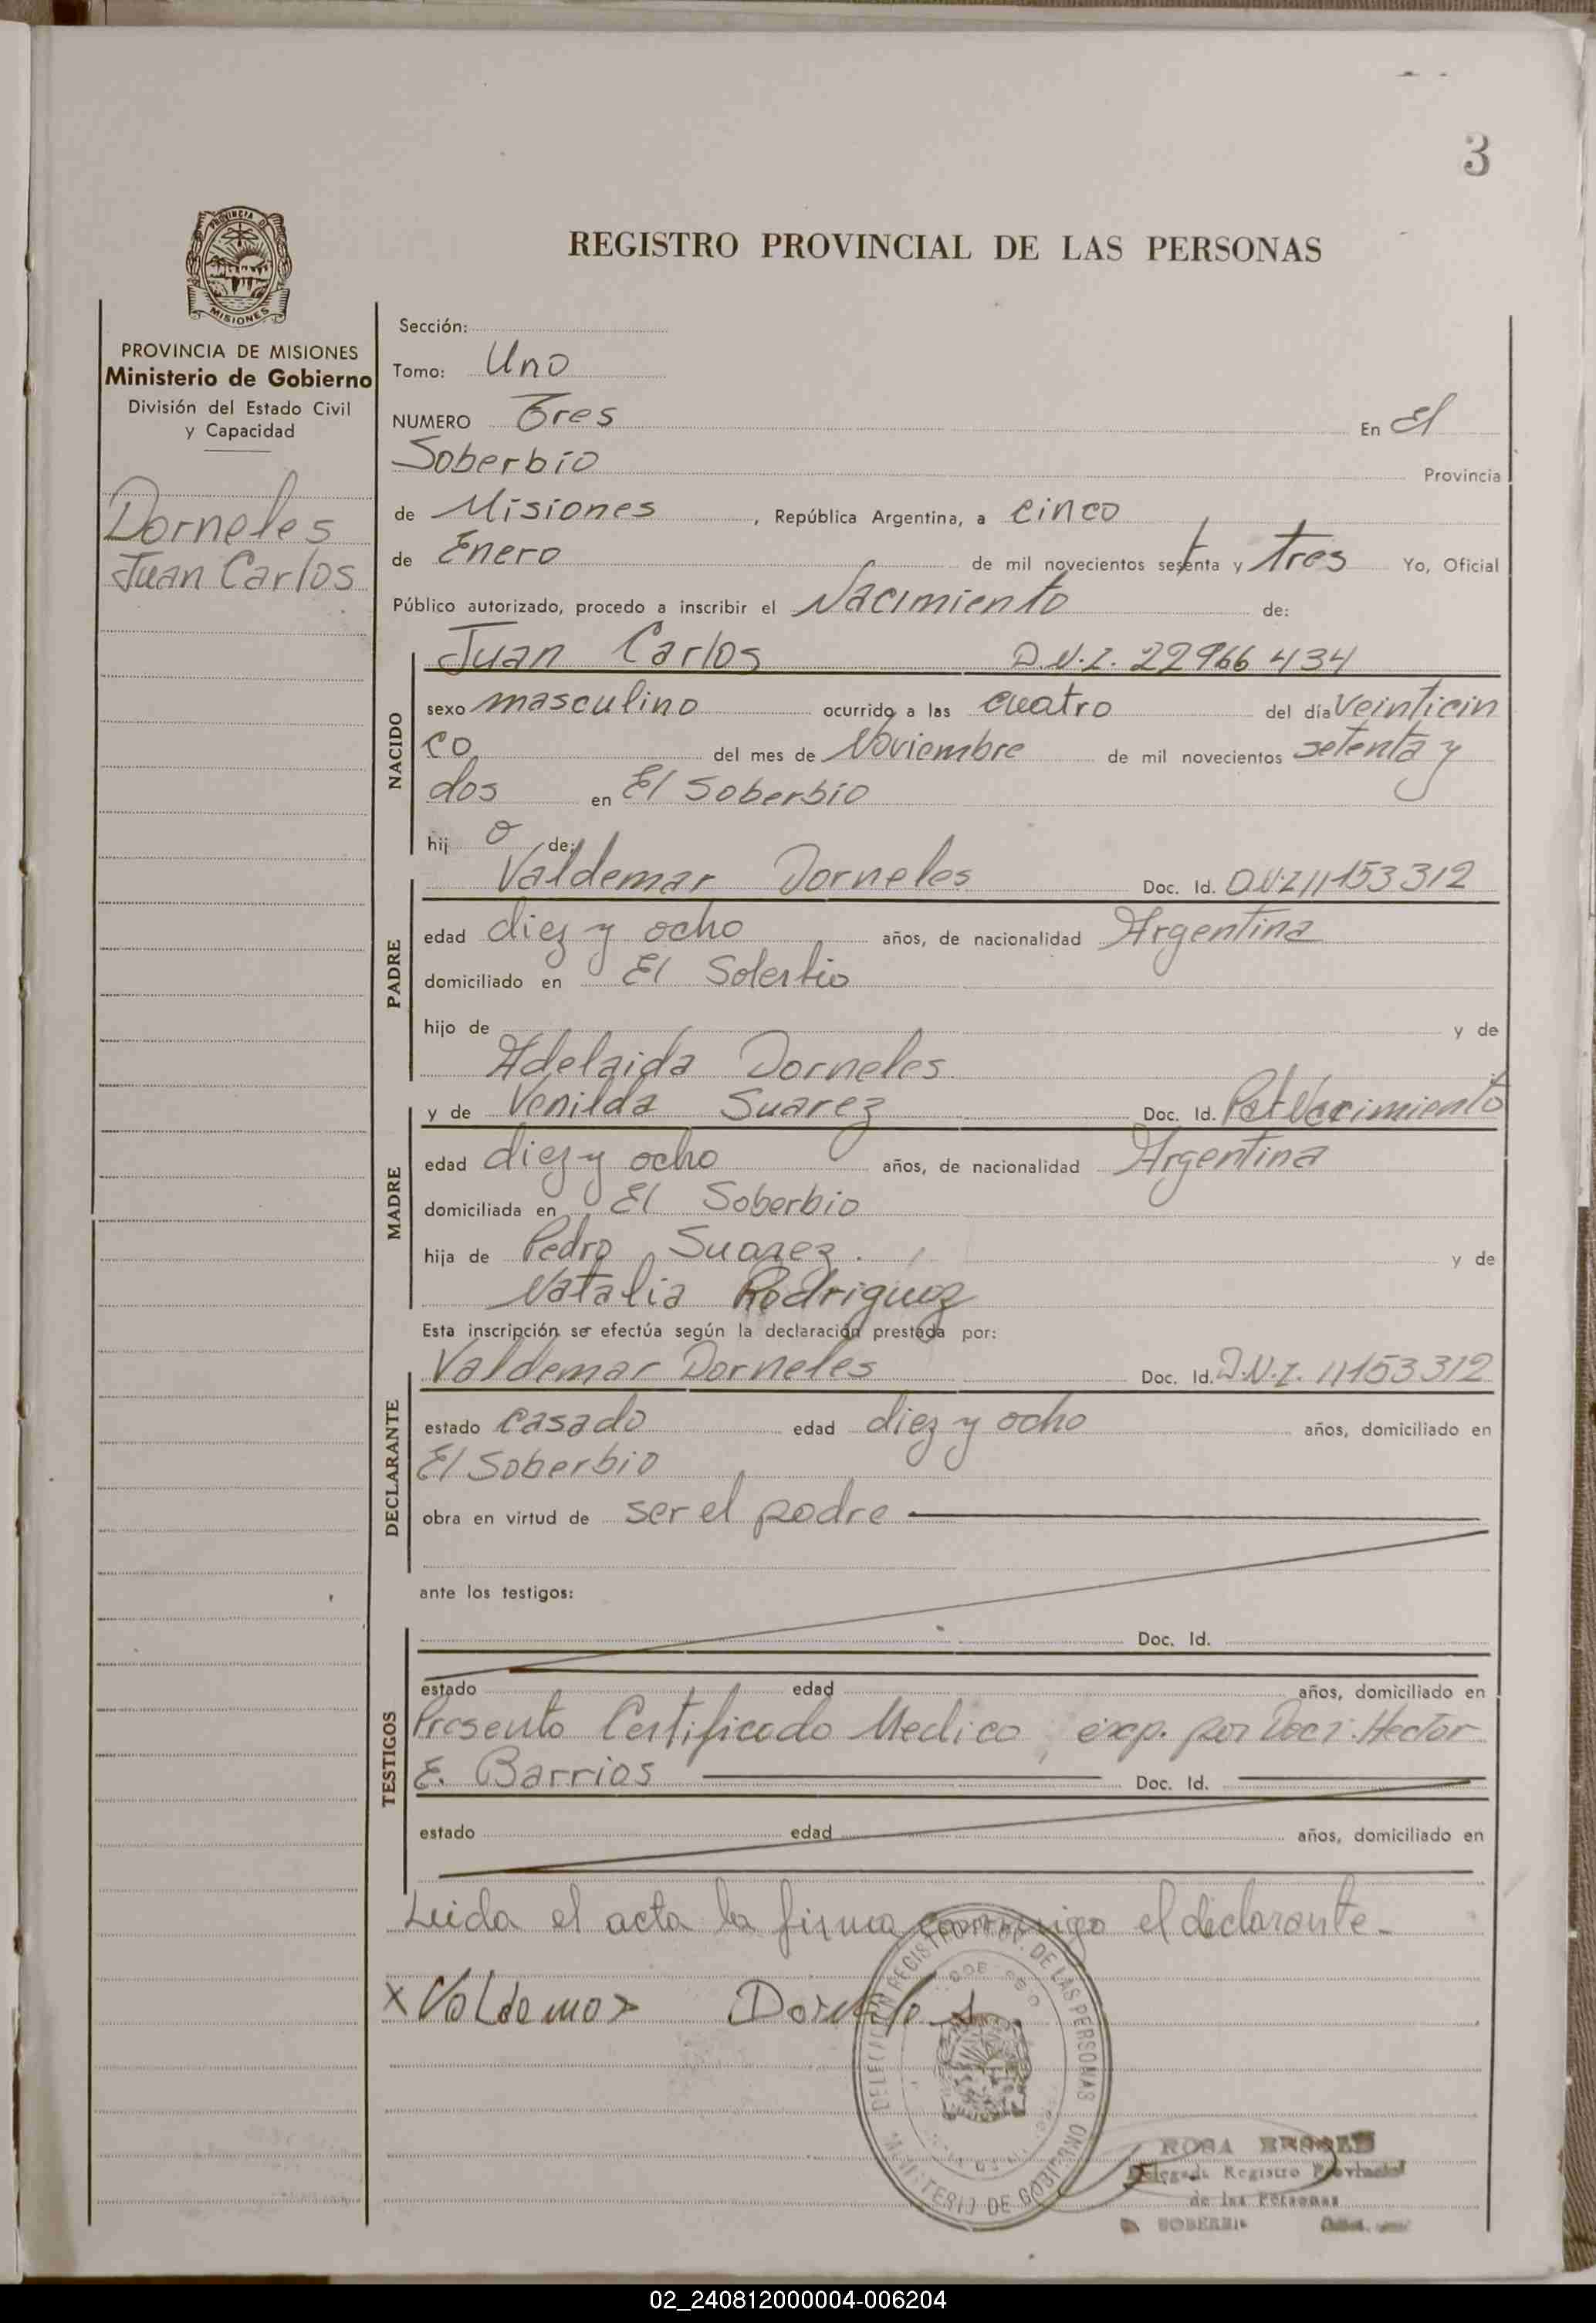 3
PROVINCIA DE
MISIONES
REGISTRO PROVINCIAL DE LAS PERSONAS
PROVINCIA DE MISIONES
Ministerio de Gobierno
División del Estado Civil
y Capacidad
Dorneles
Juan Carlos
Sección:
Tomo: Uno
NUMERO Tres En El
Soberbio Provincia
de Misiones , República Argentina, a cinco
de Enero de mil novecientos setenta y tres Yo, Oficial
Público autorizado, procedo a inscribir el Nacimiento de:
NACIDO
Juan Carlos D.N.I. 22966434
sexo masculino ocurrido a las cuatro del día Veinticin
co del mes de Noviembre de mil novecientos setenta y
dos en El Soberbio
hij o de:
PADRE
Valdemar Dorneles Doc. Id. D.N.I 11153312
edad diez y ocho años, de nacionalidad Argentina
domiciliado en El Soberbio
hijo de y de
Adelaida Dorneles
MADRE
y de Venilda Suarez Doc. Id. Nacimiento
edad diez y ocho años, de nacionalidad Argentina
domiciliada en El Soberbio
hija de Pedro Suarez. y de
Natalia Rodriguez
Esta inscripción se efectúa según la declaración prestada por:
DECLARANTE
Valdemar Dorneles Doc. Id. D.N.I. 11153312
estado casado edad diez y ocho años, domiciliado en
El Soberbio
obra en virtud de ser el padre
ante los testigos:
TESTIGOS
Doc. Id.
estado edad años, domiciliado en
Presento Certificado Medico, exp. por Doct. Hector
E. Barrios Doc. Id.
estado edad años, domiciliado en
Leida el acta la firma conmigo el declarante.-
x Valdemar Dorneles
REGISTRO PROV. DE LAS PERSONAS
MINISTERIO DE GOBIERNO
ROSA
Delegada Registro Provincial
de las Personas
SOBERBIO
02_240812000004-006204